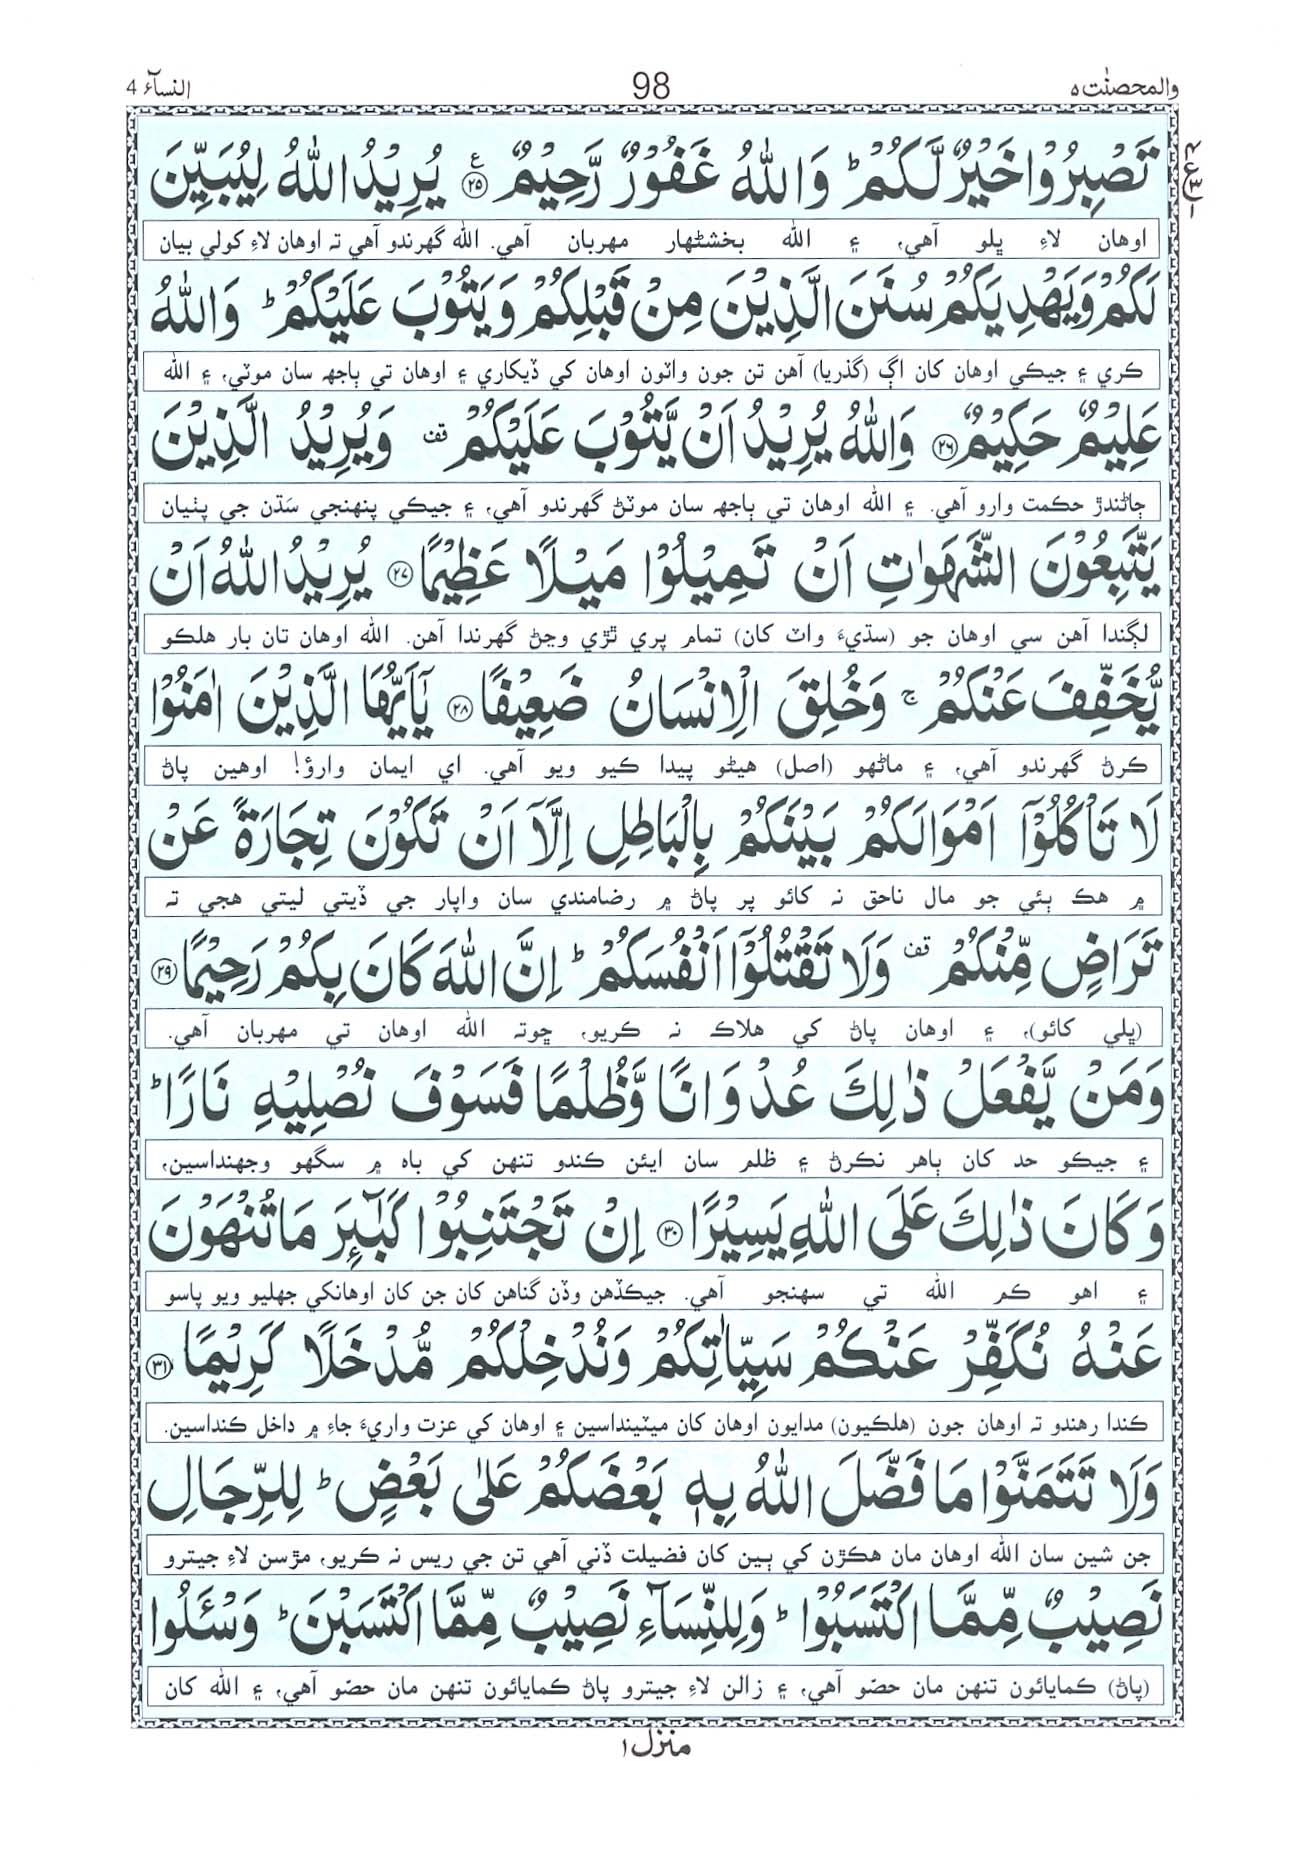 والمحصنٰت ٥ 98 النسآء 4
تَصْبِرُوْا خَيْرٌ لَّكُمْ ؕ وَاللّٰهُ غَفُوْرٌ رَّحِيْمٌ ﴿۲۵﴾ ع يُرِيْدُ اللّٰهُ لِيُبَيِّنَ
اوهان لاءِ ڀلو آهي، ۽ الله بخشڻهار مهربان آهي. الله گهرندو آهي تہ اوهان لاءِ کولي بيان
لَكُمْ وَيَهْدِيَكُمْ سُنَنَ الَّذِيْنَ مِنْ قَبْلِكُمْ وَيَتُوْبَ عَلَيْكُمْ ؕ وَاللّٰهُ
ڪري ۽ جيڪي اوهان کان اڳ (گذريا) آهن تن جون واٽون اوهان کي ڏيکاري ۽ اوهان تي ٻاجهہ سان موٽي، ۽ الله
عَلِيْمٌ حَكِيْمٌ ﴿۲۶﴾ وَاللّٰهُ يُرِيْدُ اَنْ يَّتُوْبَ عَلَيْكُمْ قف وَيُرِيْدُ الَّذِيْنَ
ڄاڻندڙ حڪمت وارو آهي. ۽ الله اوهان تي ٻاجهہ سان موٽڻ گهرندو آهي، ۽ جيڪي پنهنجي سَڌن جي پٺيان
يَتَّبِعُوْنَ الشَّهَوٰتِ اَنْ تَمِيْلُوْا مَيْلًا عَظِيْمًا ﴿۲۷﴾ يُرِيْدُ اللّٰهُ اَنْ
لڳندا آهن سي اوهان جو (سڌيءَ واٽ کان) تمام پري ٿڙي وڃڻ گهرندا آهن. الله اوهان تان بار هلڪو
يُّخَفِّفَ عَنْكُمْ ۚ وَخُلِقَ الْاِنْسَانُ ضَعِيْفًا ﴿۲۸﴾ يٰٓاَيُّهَا الَّذِيْنَ اٰمَنُوْا
ڪرڻ گهرندو آهي، ۽ ماڻهو (اصل) هيڻو پيدا ڪيو ويو آهي. اي ايمان وارؤ! اوهين پاڻ
لَا تَاْكُلُوْٓا اَمْوَالَكُمْ بَيْنَكُمْ بِالْبَاطِلِ اِلَّآ اَنْ تَكُوْنَ تِجَارَةً عَنْ
۾ هڪ ٻئي جو مال ناحق نہ کائو پر پاڻ ۾ رضامندي سان واپار جي ڏيتي ليتي هجي تہ
تَرَاضٍ مِّنْكُمْ قف وَلَا تَقْتُلُوْٓا اَنْفُسَكُمْ ؕ اِنَّ اللّٰهَ كَانَ بِكُمْ رَحِيْمًا ﴿۲۹﴾
(ڀلي کائو)، ۽ اوهان پاڻ کي هلاڪ نہ ڪريو، ڇوتہ الله اوهان تي مهربان آهي.
وَمَنْ يَّفْعَلْ ذٰلِكَ عُدْوَانًا وَّظُلْمًا فَسَوْفَ نُصْلِيْهِ نَارًا ؕ
۽ جيڪو حد کان ٻاهر نڪرڻ ۽ ظلم سان ايئن ڪندو تنهن کي باہ ۾ سگهو وجهنداسين،
وَكَانَ ذٰلِكَ عَلَى اللّٰهِ يَسِيْرًا ﴿۳۰﴾ اِنْ تَجْتَنِبُوْا كَبَآئِرَ مَا تُنْهَوْنَ
۽ اهو ڪم الله تي سهنجو آهي. جيڪڏهن وڏن گناهن کان جن کان اوهانکي جهليو ويو پاسو
عَنْهُ نُكَفِّرْ عَنْكُمْ سَيِّاٰتِكُمْ وَنُدْخِلْكُمْ مُّدْخَلًا كَرِيْمًا ﴿۳۱﴾
ڪندا رهندو تہ اوهان جون (هلڪيون) مدايون اوهان کان ميٽينداسين ۽ اوهان کي عزت واريءَ جاءِ ۾ داخل ڪنداسين.
وَلَا تَتَمَنَّوْا مَا فَضَّلَ اللّٰهُ بِهٖ بَعْضَكُمْ عَلٰى بَعْضٍ ؕ لِلرِّجَالِ
جن شين سان الله اوهان مان هڪڙن کي ٻين کان فضيلت ڏني آهي تن جي ريس نہ ڪريو، مڙسن لاءِ جيترو
نَصِيْبٌ مِّمَّا اكْتَسَبُوْا ؕ وَلِلنِّسَآءِ نَصِيْبٌ مِّمَّا اكْتَسَبْنَ ؕ وَسْـَٔلُوا
(پاڻ) ڪمايائون تنهن مان حصّو آهي، ۽ زالن لاءِ جيترو پاڻ ڪمايائون تنهن مان حصّو آهي، ۽ الله کان
منزل ۱